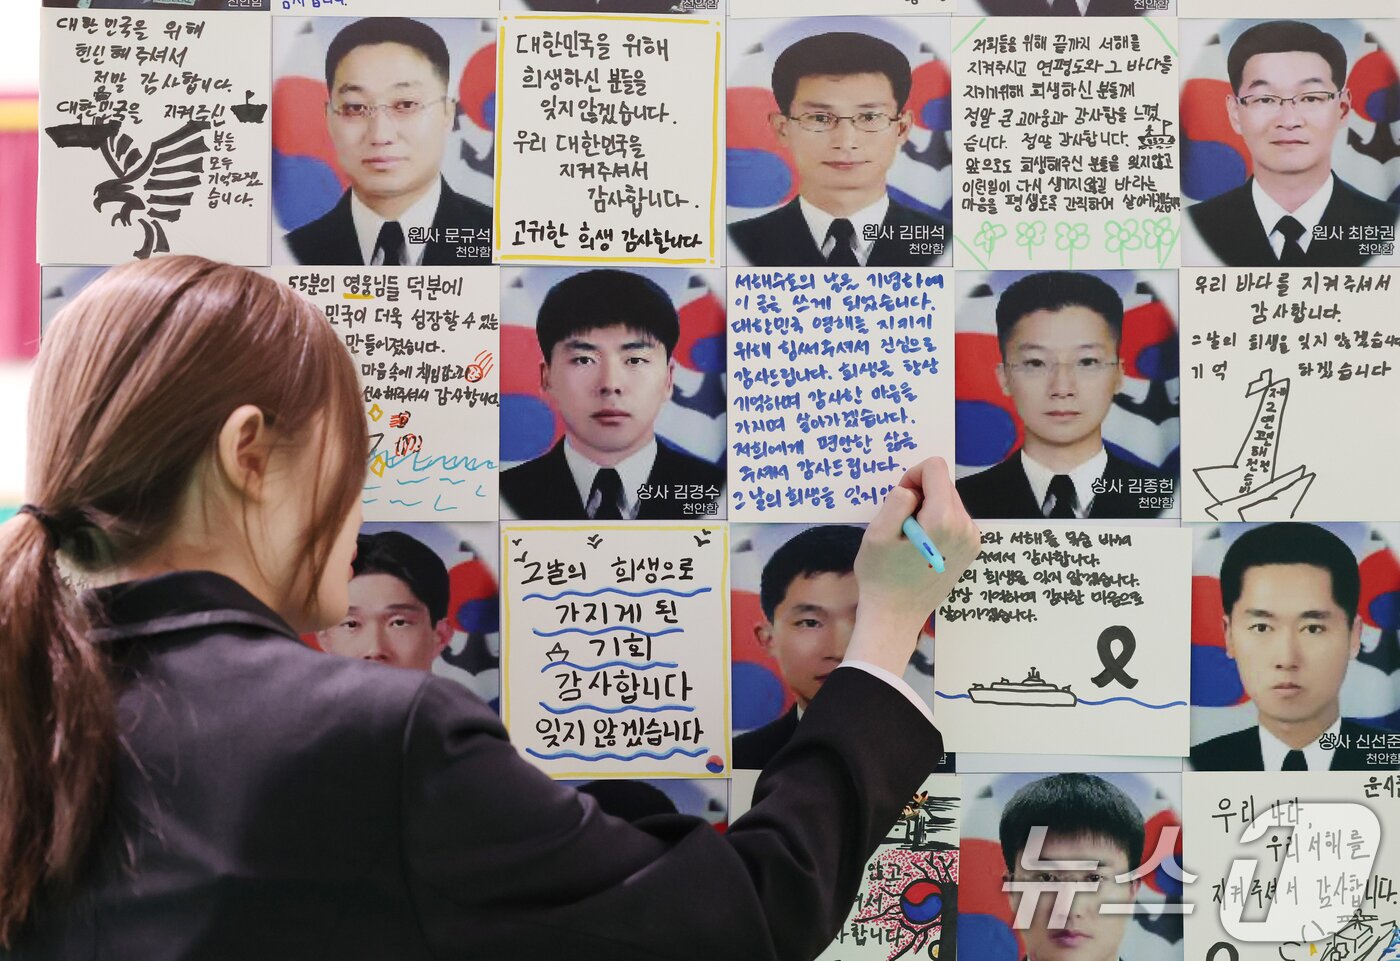 천안함
천안함
천안함
대한민국을 위해
헌신해주셔서
정말 감사합니다.
대한민국을 지켜주신
분들
모두
기억하겠
습니다.
원사 문규석
천안함
대한민국을 위해
희생하신 분들을
잊지 않겠습니다.
우리 대한민국을
지켜주셔서
감사합니다.
고귀한 희생 감사합니다
원사 김태석
천안함
저희들을 위해 끝까지 서해를
지켜주시고 연평도와 그 바다를
지키기위해 희생하신 분들께
정말 큰 고마움과 감사함을 느꼈
습니다. 정말 감사합니다.
앞으로도 희생해주신 분들을 잊지않고
이런일이 다시 생기지않길 바라는
마음을 평생도록 간직하며 살아가겠습니다
원사 최한권
천안함
55분의 영웅님들 덕분에
민국이 더욱 성장할 수 있는
만들어졌습니다.
마음속에
주셔서 감사합니다.
상사 김경수
천안함
서해수호의 날은 기념하며
이 글을 쓰게 되었습니다.
대한민국 영해를 지키기
위해 힘써주셔서 진심으로
감사드립니다. 희생을 항상
기억하며 감사한 마음을
가지며 살아가겠습니다.
저희에게 평안한 삶을
주셔서 감사드립니다.
그날의 희생을 잊지
상사 김종헌
천안함
우리 바다를 지켜주셔서
감사합니다.
그날의 희생을 잊지 않겠습니다
기억 하겠습니다
제2연평해전
그날의 희생으로
가지게 된
기회
감사합니다
잊지 않겠습니다
서해를 목숨 바쳐
주셔서 감사합니다.
희생을 잊지 않겠습니다.
항상 기억하며 감사한 마음으로
살아가겠습니다.
상사 신선준
천안함
우리 나라,
우리 서해를
지켜주셔서 감사합니다.
뉴스1